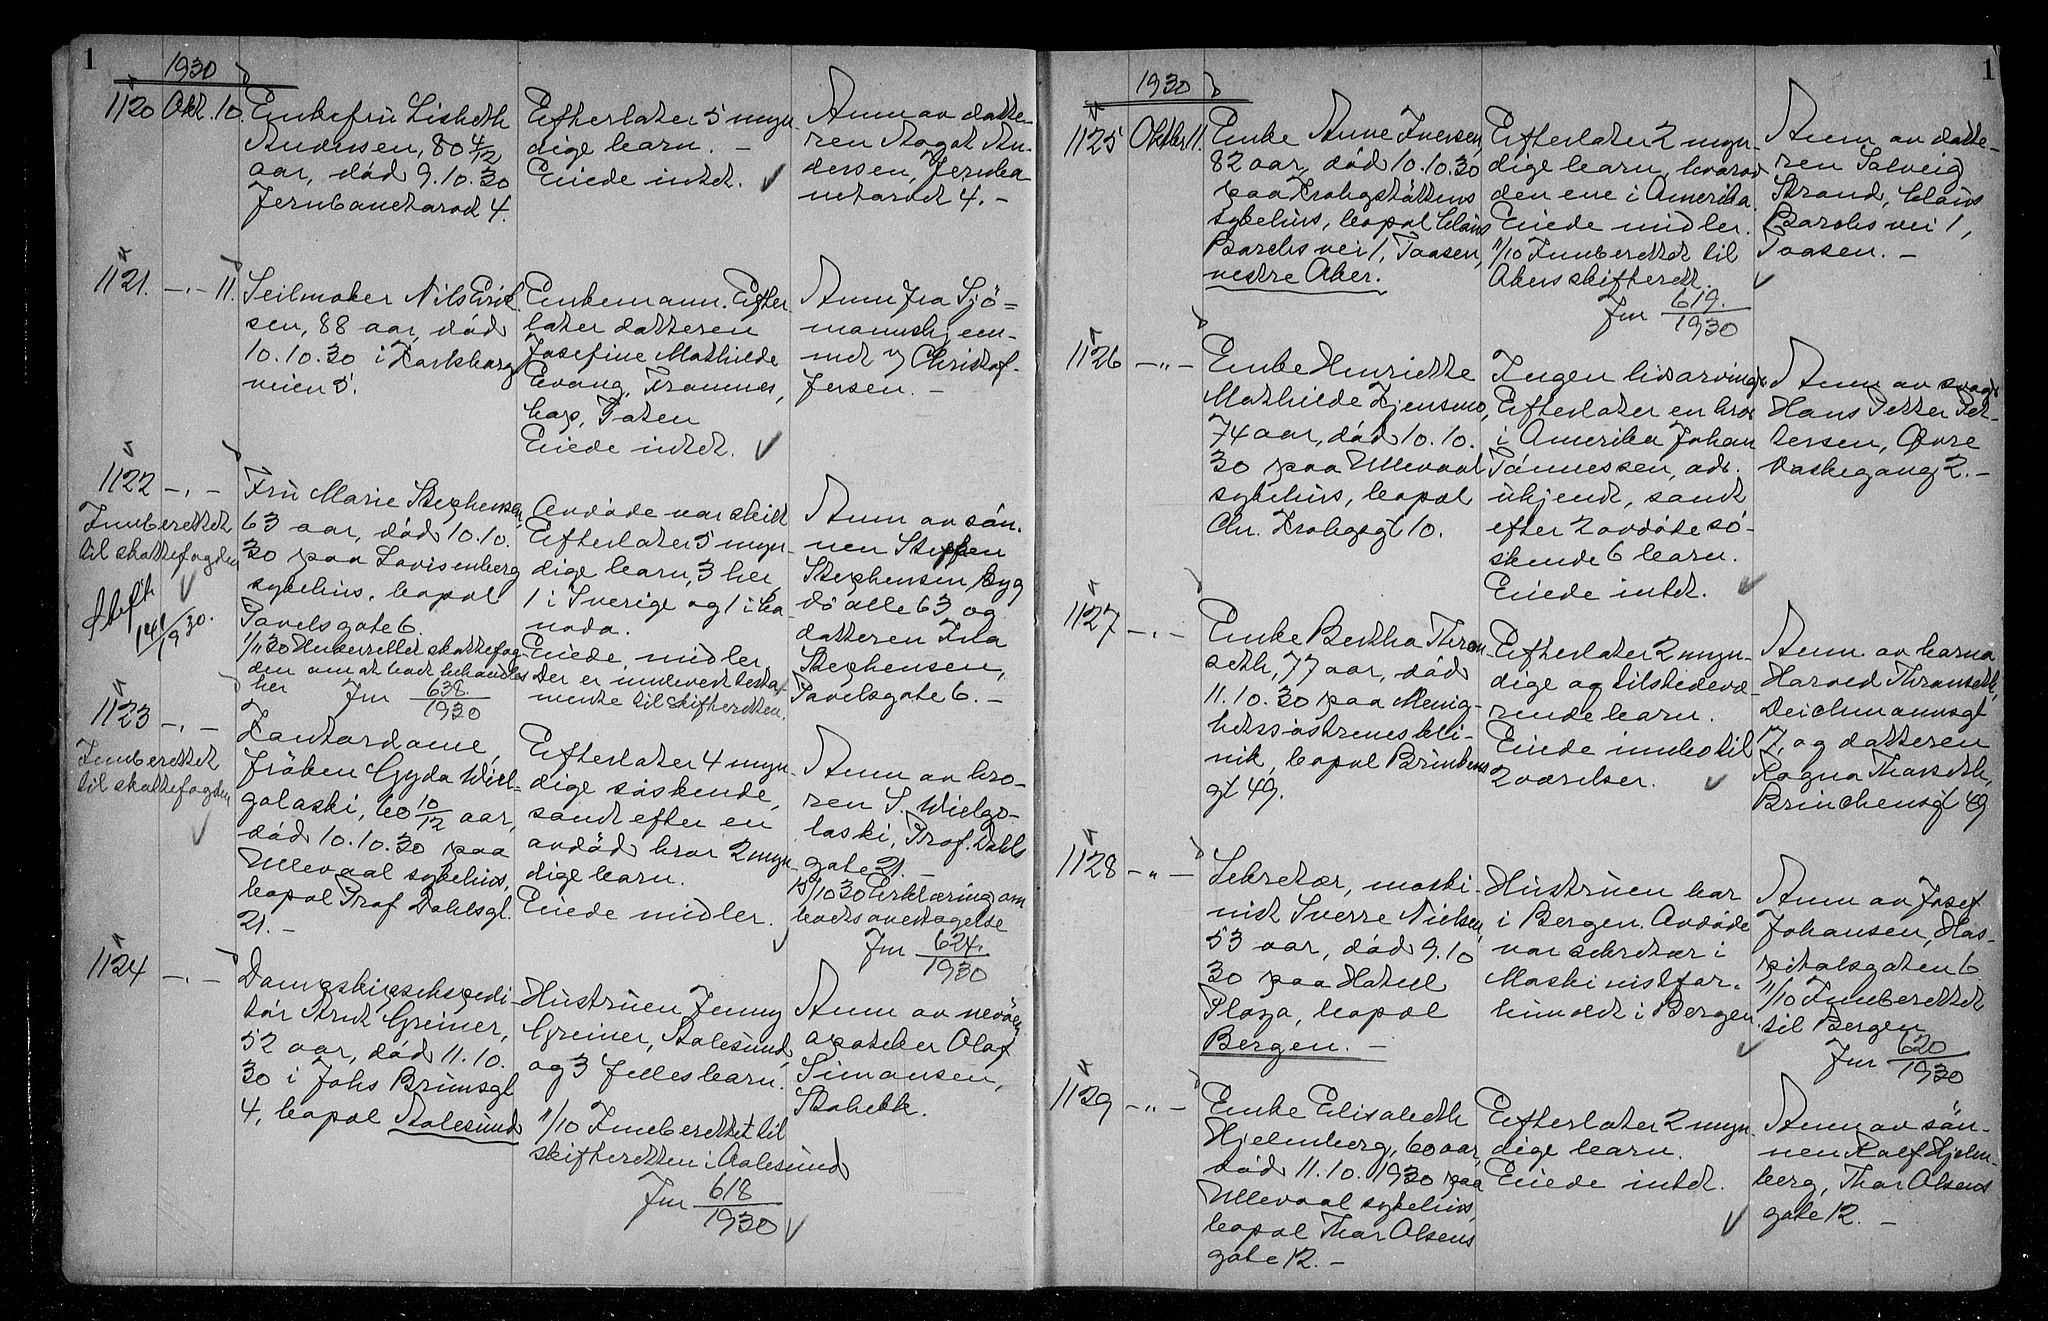 1
1930
1120 Okt. 10. Enkefru Lisbeth
Andersen, 80 4/12
aar, död 9.10.30
Jernbanetorvet 4.
Efterlater 5 myn
dige barn. -
Eiede intet.
Anm av datte-
ren Aagot An-
dersen, Jernba
netorvet 4. -
1121. -"- 11. Seilmaker Nils Erik
sen, 88 aar, död
10.10.30 i Karlsborg
veien 5.
Enkemann. Efter
later datteren
Josefine Mathilde
Evang, Tromnes,
Eiede intet.
Anm fra Sjö=
mannshjem-
met v/ Christof-
fersen. -
1122 -"-
Innberettet
til skattefogden
Fru Marie Stephensen
63 aar, död 10.10.
30 paa Lovisenberg
sykehus, bopæl
Pavelsgate 6.
den om at boet behandles
her Jnr 638/1930
Avdöde var skilt
Efterlater 5 myn-
dige barn, 3 her
1 i Sverige og 1 i Ca
nada.
Eiede midler
Der er innlevert testa-
mente til skifteretten.
Anm av sön-
nen Steffen
Stephensen, Byg
dö alle 63 og
datteren Ida
Stephensen,
Pavelsgate 6. -
1123 -"-
Innberettet
til skattefogden
Kontordame,
fröken Gyda Wiel-
golaski, 60 10/12 aar,
död 10.10.30 paa
Ullevaal sykehus,
bopæl Prof Dahlsgt.
21. -
Efterlater 4 myn
dige söskende,
samt efter en
avdöd bror 2 myn
dige barn.
Eiede midler.
Anm av bro-
ren S. Wielgo-
laski, Prof. Dahls
gate 21. -
15/10 30 Erklæring om
boets overtagelse
Jnr 624/1930
1124 -"-
Dampskipsekspedi-
tör Arnt Greiner,
52 aar, död 11.10.
30 i Johs Brunsgt
4, bopæl Aalesund
Hustruen Jenny
Greiner, Aalesund,
og 3 felles barn.
11/10 Innberettet til
skifteretten i Aalesund
Jnr 618/1930
Anm av nevöen
apoteker Olaf
Simonsen,
Stabekk.
1
1930
1125 Oktbr 11. Enke Anne Iversen,
82 aar, död 10.10.30
paa Krohgstöttens
sykehus, bopæl Claus
Borchs vei 1, Taasen,
vestre Aker.
Efterlater 2 myn-
dige barn, hvorav
den ene i Amerika.
Eiede midler.
11/10 Innberettet til
Akers skifterett.
Jnr 619./1930
Anm av datte-
ren Solveig
Strand, Claus
Borchs vei 1,
Taasen. -
1126 -"- Enke Henriette
Mathilde Kjensmo,
74 aar, död 10.10.
30 paa Ullevaal
sykehus, bopæl
Chr. Krohgsgt 10.
Ingen livsarvinge
Efterlater en bror
i Amerika Johan
Tönnessen, adr.
ukjendt, samt
efter 2 avdöde sö-
skende 6 barn.
Eiede intet.
Anm av svoger
Hans Petter Pet-
tersen, Övre
Vaskegang 2. -
1127 -"- Enke Bertha Thron-
seth, 77 aar, död
11.10.30 paa Menig-
hetssöstrenes kli-
nik, bopæl Brinkens
gt 49.
Efterlater 2 myn-
dige og tilstedevæ-
rende barn.
Eiede innbo til
2 værelser.
Anm av barna
Harald Thronseth,
Deichmannsgt
7, og datteren
Ragna Thorseth,
Brinchensgt 49
1128 -"- Sekretær, maski-
nist Sverre Nielsen,
53 aar, död 9.10
30 paa Hotell
Plaza, bopæl
Bergen. -
Hustruen bor
i Bergen. Avdöde
var sekretær i
Maskinistfor-
bundet i Bergen.
Anm av Josef
Johansen, Hos-
pitalsgaten 6
11/10 Innberettet
til Bergen
Jnr 620/1930
1129 -"- Enke Elisabeth
Hjelmberg, 60 aar,
död 11.10.1930 paa
Ullevaal sykehus,
bopæl Thor Olsens
gate 12. -
Efterlater 2 myn-
dige barn.
Eiede intet.
Anm av sön-
nen Rolf Hjelm-
berg, Thor Olsens
gate 12. -